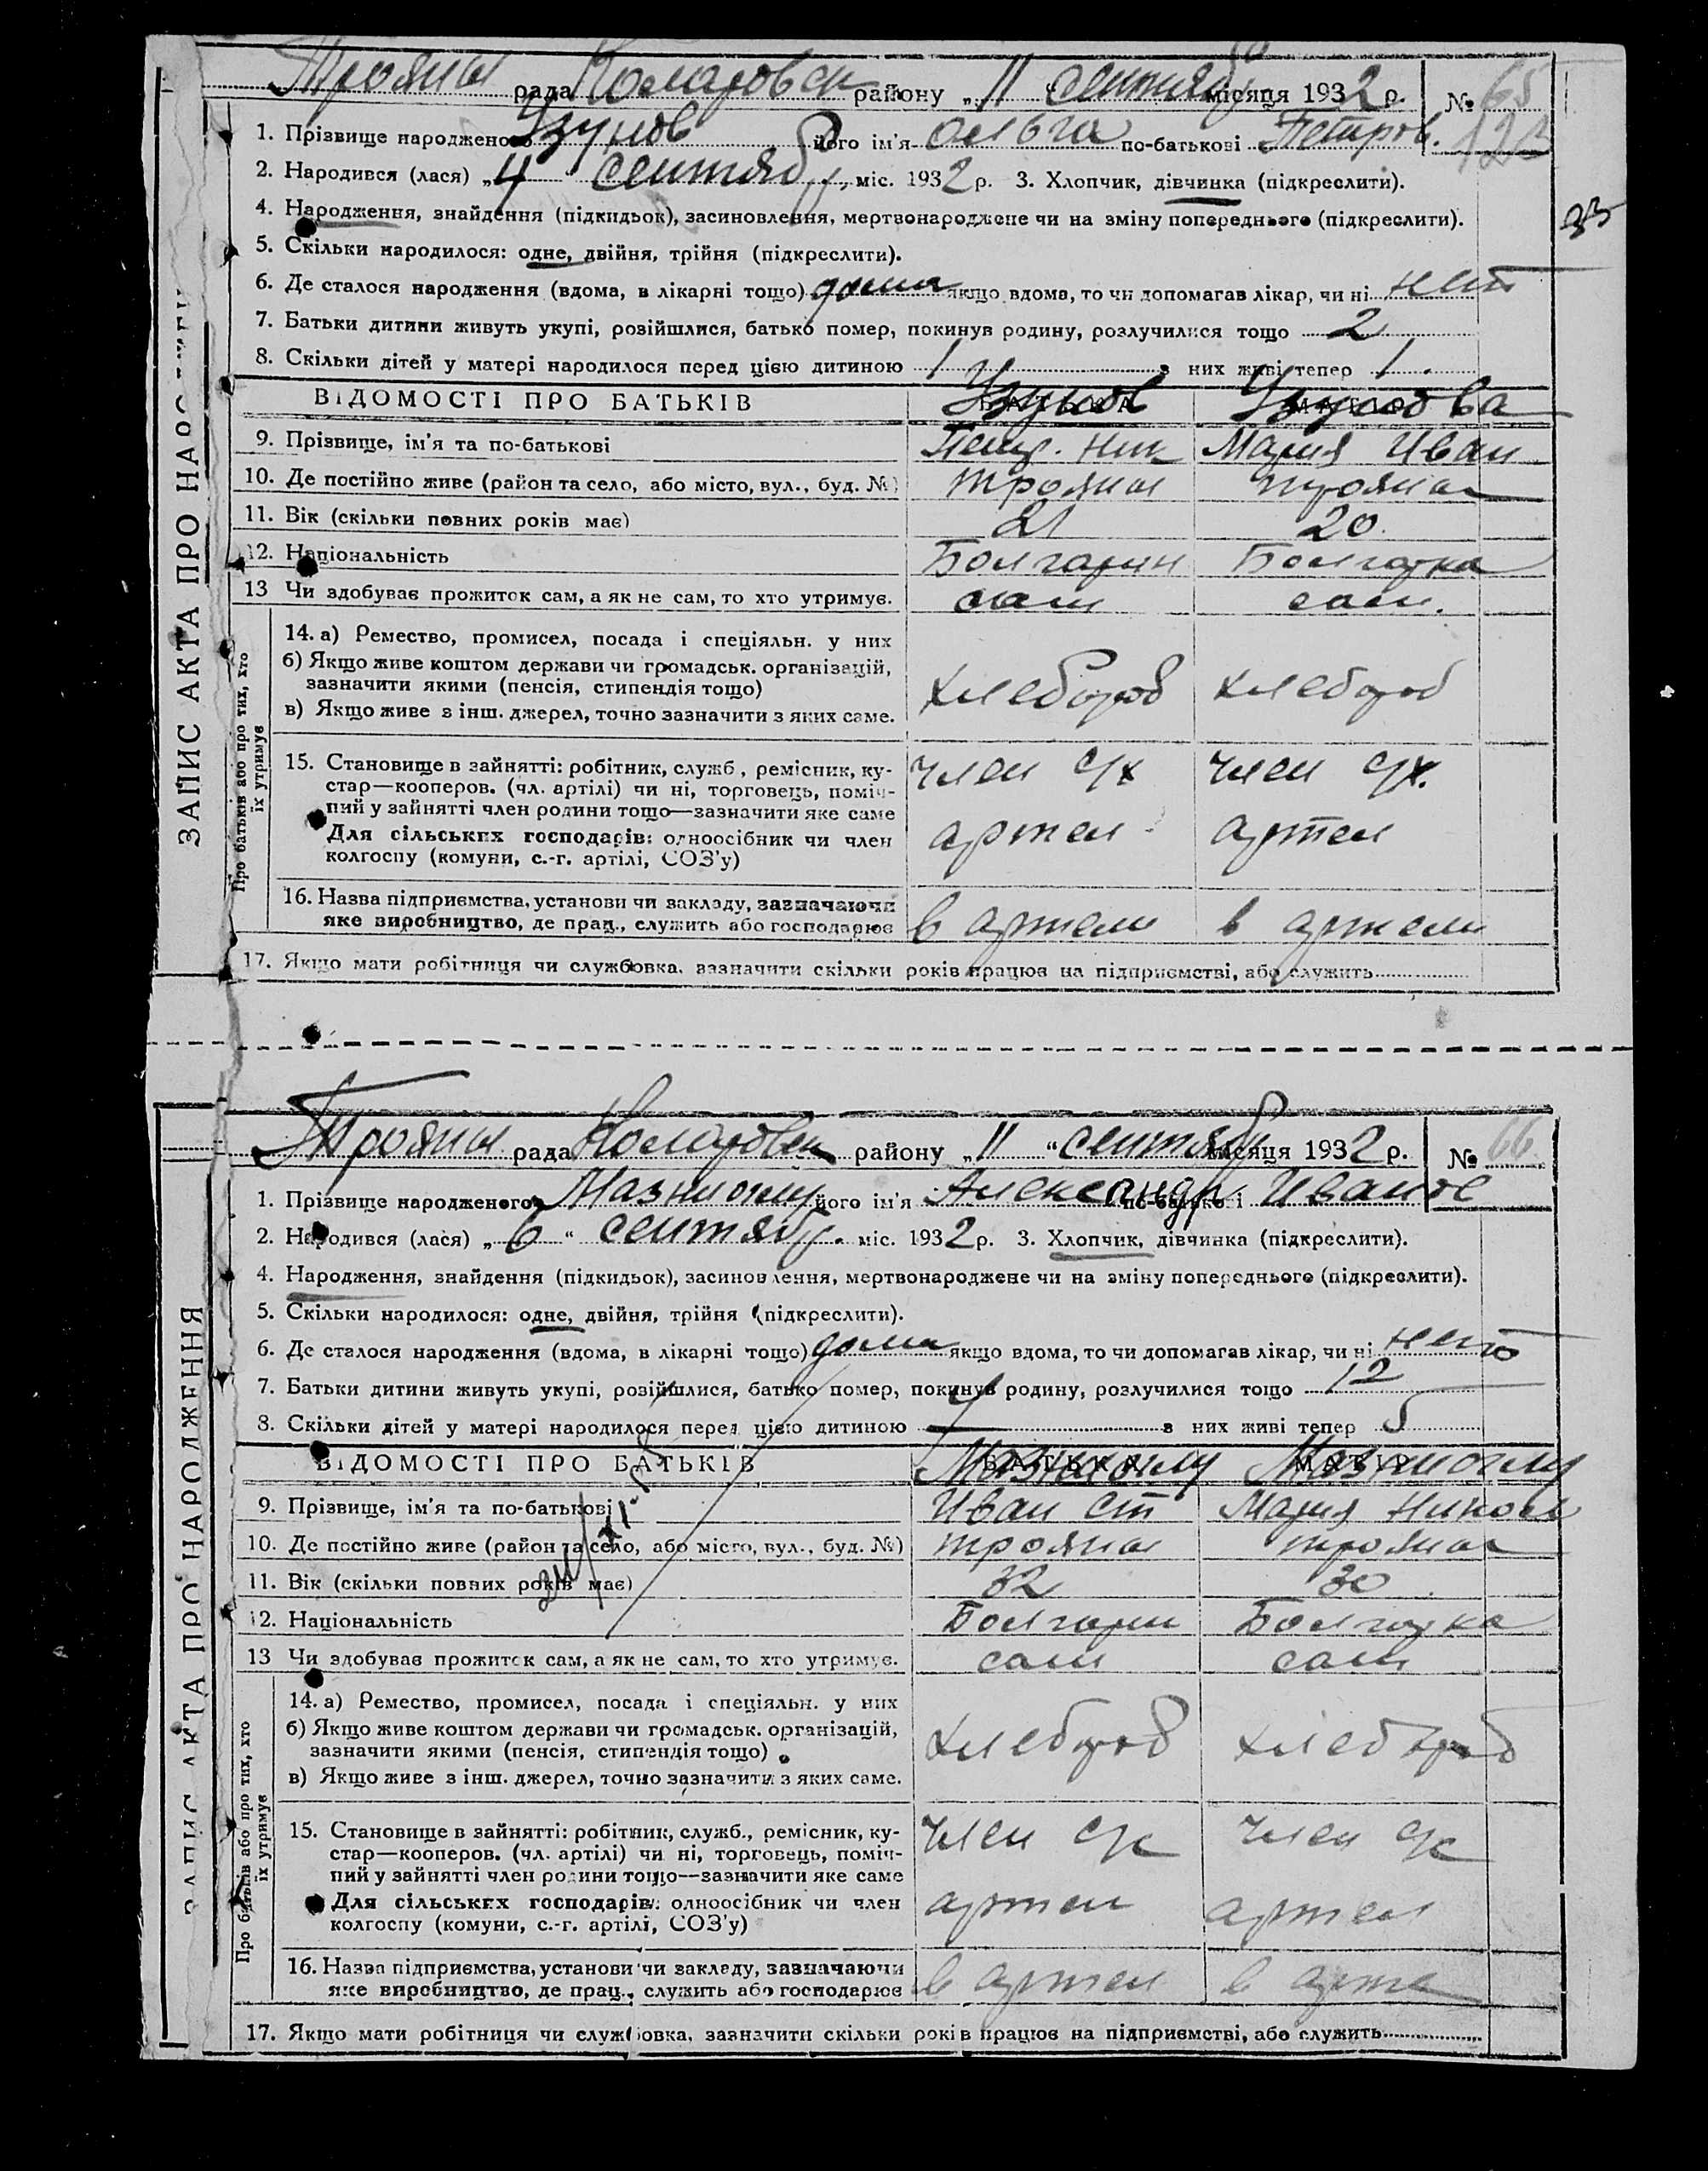 Трояны рада Коларовск району „11“ сентябр місяця 1932 р. № 65
1. Прізвище народженого Узунов його ім'я Ольга по-батькові Петров. 123
2. Народився (лася) „4“ сентябр, міс. 1932 р. 3. Хлопчик, дівчинка (підкреслити).
4. Народження, знайдення (підкидьок), засиновлення, мертвонароджене чи на зміну попереднього (підкреслити).
33
5. Скільки народилося: одне, двійня, трійня (підкреслити).
6. Де сталося народження (вдома, в лікарні тощо) дома якщо вдома, то чи допомагав лікар, чи ні нет
7. Батьки дитини живуть укупі, розійшлися, батько помер, покинув родину, розлучилися тощо 2
8. Скільки дітей у матері народилося перед цією дитиною 1 з них живі тепер 1.
ВІДОМОСТІ ПРО БАТЬКІВ БАТЬКА МАТІР
Узунов Узунова
9. Прізвище, ім'я та по-батькові Петр. Ник Мария Иван
10. Де постійно живе (район та село, або місто, вул., буд. №) Трояны трояны
11. Вік (скільки повних років має) 21 20.
12. Національність Болгарин Болгарка
13 Чи здобуває прожиток сам, а як не сам, то хто утримує. сам сам.
14. а) Ремество, промисел, посада і спеціяльн. у них
б) Якщо живе коштом держави чи громадськ. організацій,
зазначити якими (пенсія, стипендія тощо) хлебороб хлебороб
в) Якщо живе з інш. джерел, точно зазначити з яких саме.
15. Становище в зайнятті: робітник, служб., ремісник, ку-
стар—кооперов. (чл. артілі) чи ні, торговець, поміч- член с/х член с/х.
ний у зайнятті член родини тощо—зазначити яке саме
Для сільських господарів: одноосібник чи член артел артел
колгоспу (комуни, с.-г. артілі, СОЗ'у)
16. Назва підприємства, установи чи закладу, зазначаючи
яке виробництво, де прац., служить або господарює в артели в артели
17. Якщо мати робітниця чи службовка, зазначити скільки років працює на підприємстві, або служить
ЗАПИС АКТА ПРО НАРОДЖЕН
Про батьків або про тих, хто
їх утримує
Трояны рада Коларовск району „11“ сентябр місяця 1932 р. № 66
1. Прізвище народженого Мазниоглу його ім'я Александр по-батькові Иванов
2. Народився (лася) „6“ сентябр. міс. 1932 р. 3. Хлопчик, дівчинка (підкреслити).
4. Народження, знайдення (підкидьок), засиновлення, мертвонароджене чи на зміну попереднього (підкреслити).
5. Скільки народилося: одне, двійня, трійня (підкреслити).
6. Де сталося народження (вдома, в лікарні тощо) дома якщо вдома, то чи допомагав лікар, чи ні нет
7. Батьки дитини живуть укупі, розійшлися, батько помер, покинув родину, розлучилися тощо 12
8. Скільки дітей у матері народилося перед цією дитиною з них живі тепер 5
ВІДОМОСТІ ПРО БАТЬКІВ БАТЬКА МАТІР
Мазниоглу Мазниоглу
9. Прізвище, ім'я та по-батькові Иван Ст Мария Никол
10. Де постійно живе (район та село, або місто, вул., буд. №) трояны трояны
11. Вік (скільки повних років має) 32 30
12. Національність Болгарин Болгарка
13 Чи здобуває прожиток сам, а як не сам, то хто утримує. сам сам
14. а) Ремество, промисел, посада і спеціяльн. у них
б) Якщо живе коштом держави чи громадськ. організацій,
зазначити якими (пенсія, стипендія тощо) хлебороб хлебороб
в) Якщо живе з інш. джерел, точно зазначити з яких саме.
15. Становище в зайнятті: робітник, служб., ремісник, ку-
стар—кооперов. (чл. артілі) чи ні, торговець, поміч- член с/х член с/х
ний у зайнятті член родини тощо—зазначити яке саме
Для сільських господарів: одноосібник чи член артел артел
колгоспу (комуни, с.-г. артілі, СОЗ'у)
16. Назва підприємства, установи чи закладу, зазначаючи
яке виробництво, де прац., служить або господарює в артел в арте
17. Якщо мати робітниця чи службовка, зазначити скільки років працює на підприємстві, або служить
ЗАПИС АКТА ПРО НАРОДЖЕННЯ
Про батьків або про тих, хто
їх утримує